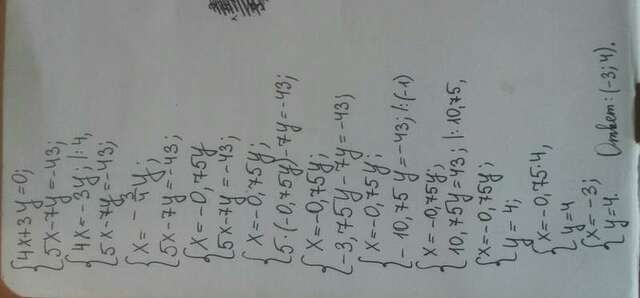 {4x+3y=0;
5x-7y=-43;
{4x=-3y; |:4,
5x-7y=-43;
{x=-3/4y;
5x-7y=-43;
{x=-0,75y
5x-7y=-43;
{x=-0,75y;
5·(-0,75y)-7y=-43;
{x=-0,75y;
-3,75y-7y=-43;
{x=-0,75y;
-10,75y=-43; |:(-1)
{x=-0,75y;
10,75y=43; |:10,75,
{x=-0,75y;
y=4;
{x=-0,75·4,
y=4
{x=-3;
y=4.
Ответ: (-3; 4).